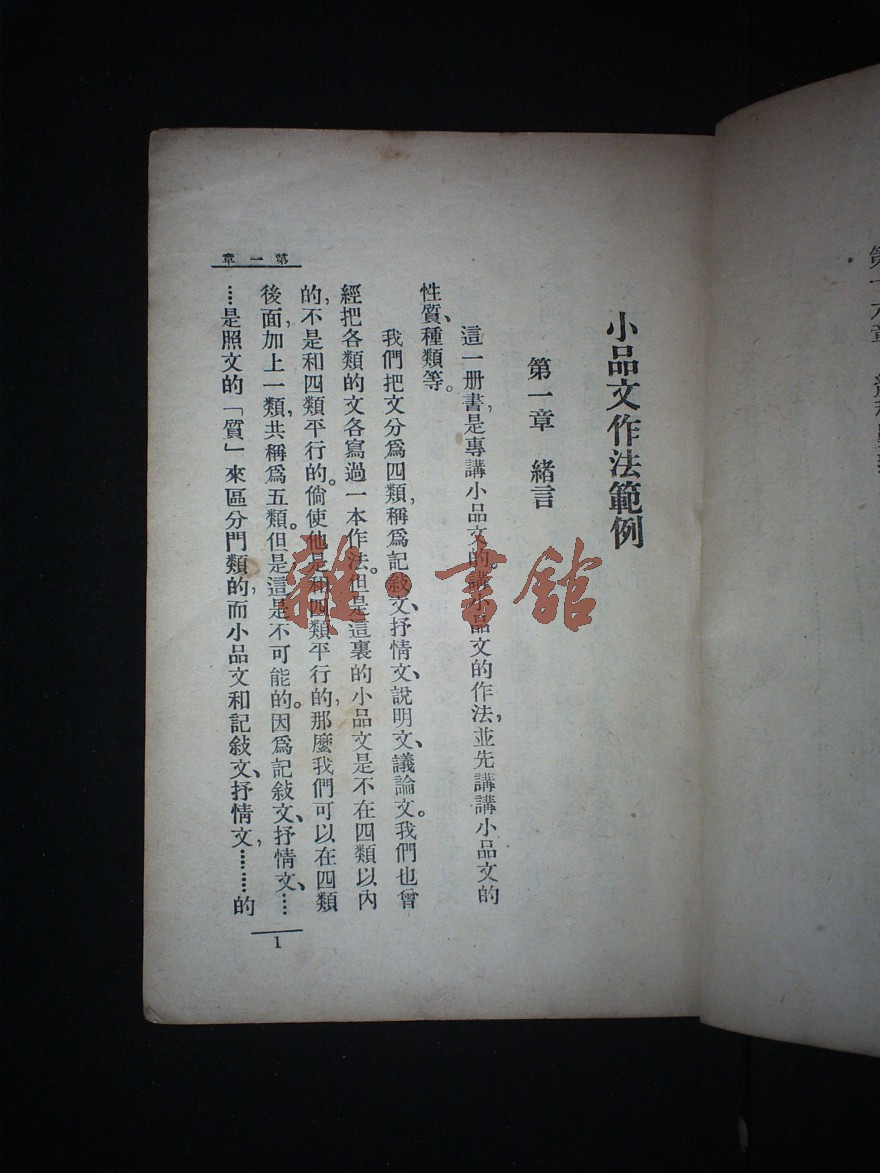 小品文作法範例
第一章 緒言
這一册書是專講小品文的。講小品文的作法,並先講講小品文的
性質、種類等。
我們把文分爲四類,稱爲記敍文、抒情文、說明文、議論文。我們也曾
經把各類的文各寫過一本作法。但是這裏的小品文是不在四類以內
的,不是和四類平行的。倘使他是和四類平行的,那麼我們可以在四類
後面,加上一類,共稱爲五類。但是這是不可能的。因爲記敍文、抒情文、……
……是照文的「質」來區分門類的,而小品文和記敍文、抒情文,………的
第一章
1
雜·書館